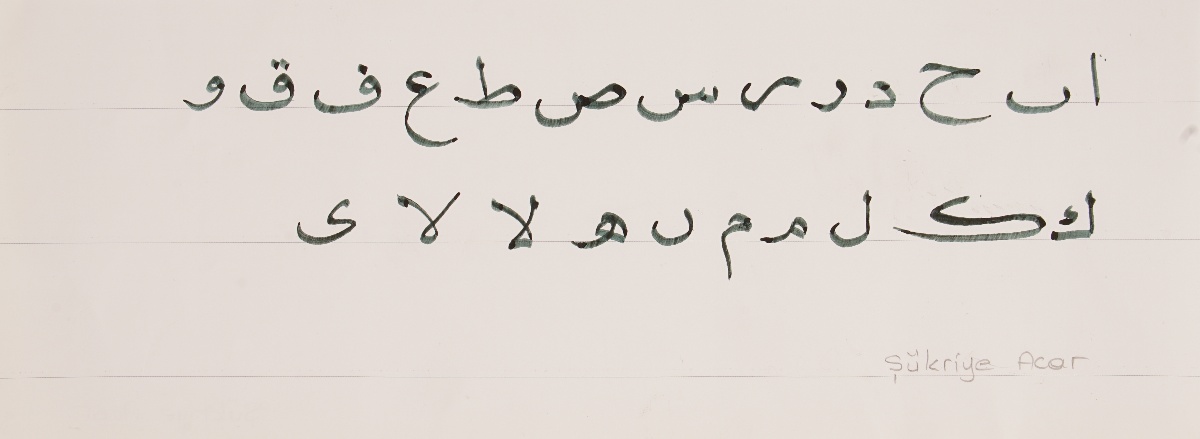 ا ٮ ح د ر س س ص ط ع ف ق و
ك ك ل م م ں ه لا لا ى
Şükriye Acar